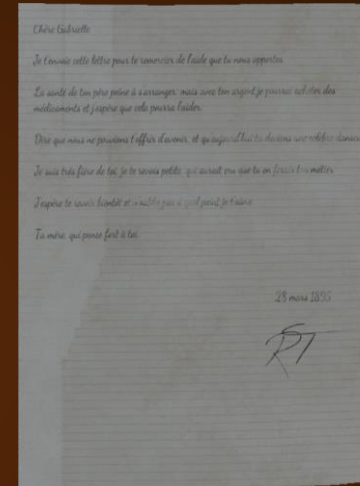 Chère Gabrielle
Je t'envoie cette lettre pour te remercier de l'aide que tu nous apportes.
La santé de ton père peine à s'arranger, mais avec ton argent je pourrai acheter des
médicaments et j'espère que cela pourra l'aider.
Dire que nous ne pouvions t'offrir d'avenir, et qu'aujourd'hui tu deviens une célèbre danseuse
Je suis très fière de toi, je te revois petite, qui aurait cru que tu en ferais ton métier
J'espère te revoir bientôt et n'oublie pas à quel point je t'aime
Ta mère, qui pense fort à toi.
28 mars 1895
RT